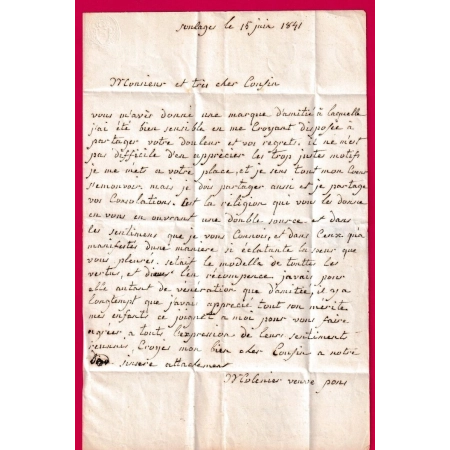 soulages le 15 juin 1841
Monsieur et très cher Cousin
vous m'avès donné une marque d'amitié à laquelle
j'ai été bien sensible en me Croyant disposée à
partager votre douleur et vos regrets. il ne m'est
pas difficile d'en apprécier les trop justes motifs
je me mets a votre place, et je sens tout mon Cœur
s'emouvoir mais je dois partager aussi et je partage
vos Consolations. C'est la religion que vous les donne
en vous en ouvrant une double source et dans
les sentimens que je vous Connois, et dans Ceux qu'a
manifestes dune maniere si éclatante la sœur que
vous pleurés. c'etait le modelle de touttes les
vertus, et dieu l'en récompence javais pour
elle autant de veneration que d'amitie, il y a
longtempt que javais apprecié tout son mérite
mes enfants ce joignet a moi pour vous faire
agréer a touts l'expresion de leurs sentiments
reunnis, Croyes mon bien cher Cousin a notre
sinsere attachement
Molenier veuve pons